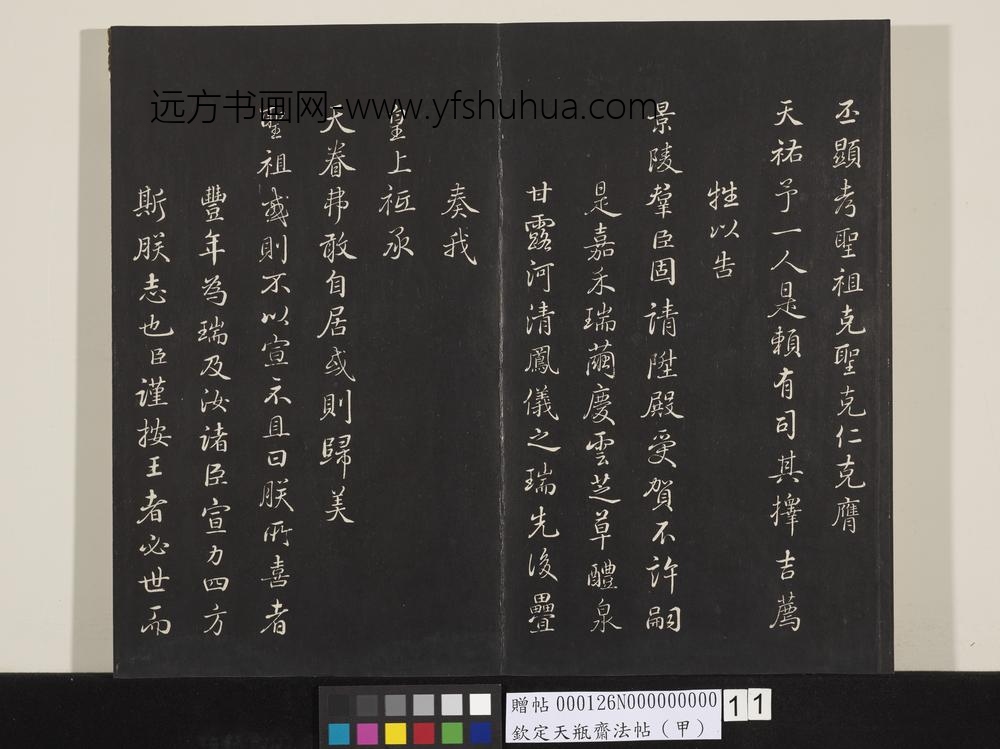 丕顯考聖祖克聖克仁克膺
天祐予一人是賴有司其擇吉薦
牲以告
景陵羣臣固請陞殿受賀不許嗣
是嘉禾瑞繭慶雲芝草醴泉
甘露河清鳳儀之瑞先後疊
奏我
皇上祗承
天眷弗敢自居或則歸美
聖祖或則不以宣示且曰朕所喜者
豐年為瑞及汝諸臣宣力四方
斯朕志也臣谨按王者必世而
远方书画网-www.yfshuhua.com
贈帖 000126N000000000 11
欽定天瓶齋法帖（甲）